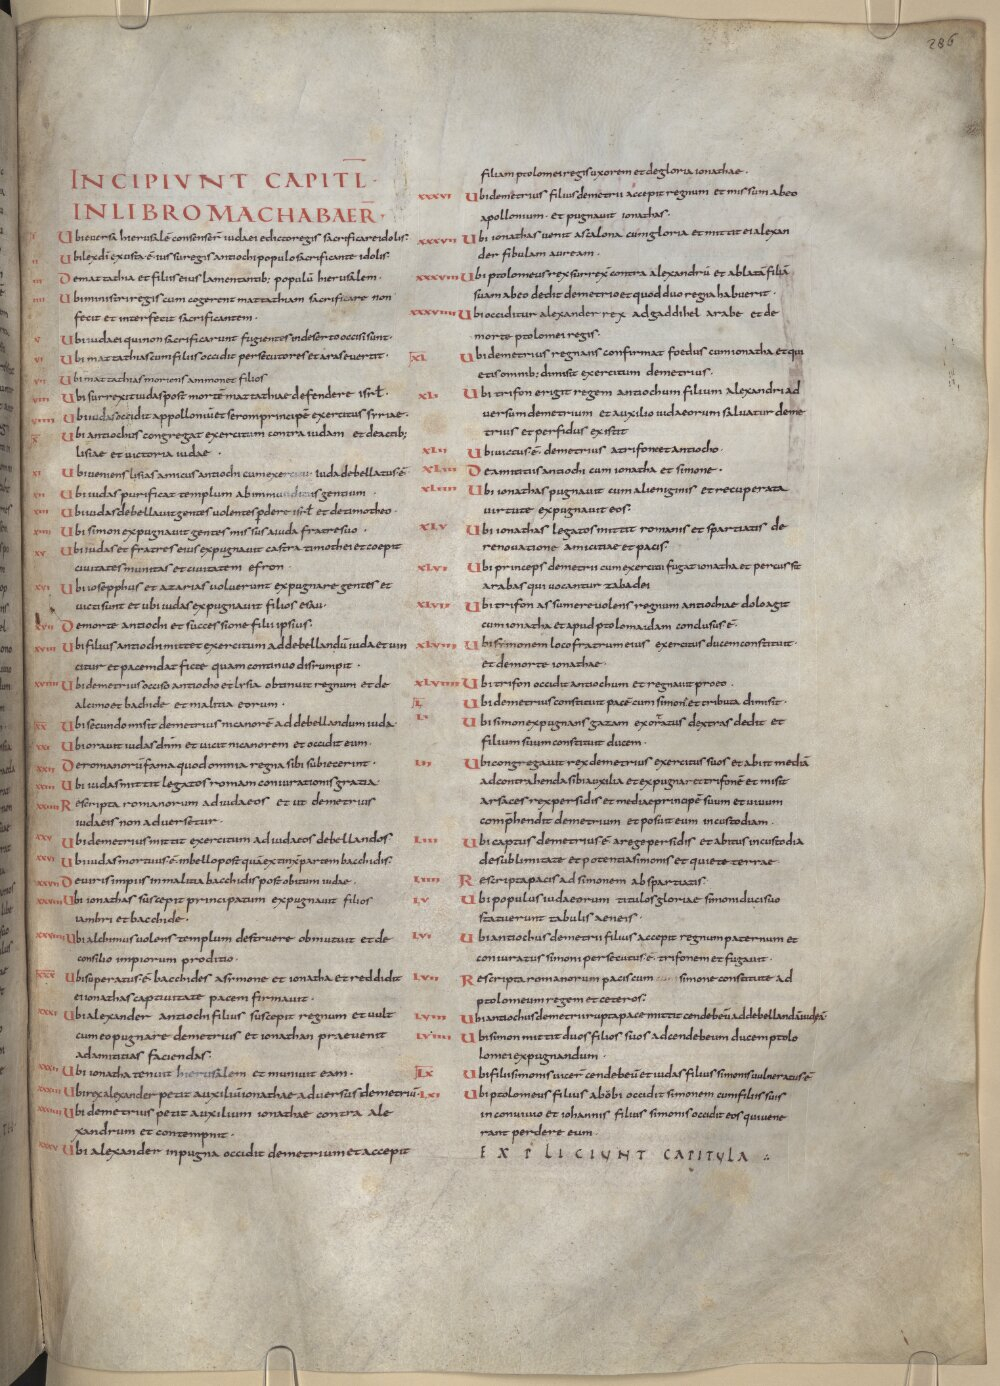 286
INCIPIUNT CAPITL̅
IN LIBRO MACHABAEOR̅
I Ubi eversa hierusalē consenserunt iudaei edicto regis sacrificare idolis
II Ubi lex dī exusta ē iussu regis antiochi populo sacrificante idolis
III De mattathia et filiis eius lamentantibus populū hierusalem
IIII Ubi ministri regis cum cogerent mattathiam sacrificare non
fecit et interfecit sacrificantem
V Ubi iudaei qui non sacrificarunt fugientes in deserto occisi sunt
VI Ubi mattathias cum filiis occidit persecutores et aras evertit
VII Ubi mattathias moriens ammonet filios
VIII Ubi surrexit iudas post mortē mattathiae defendere isrl̄
VIIII Ubi iudas occidit appolloniū et seron principē exercitus syriae
X Ubi antiochus congregat exercitum contra iudam et de actib;
lisiae et victoria iudae
XI Ubi veniens lysias amicus antiochi cum exercitu iuda debellatus ē
XII Ubi iudas purificat templum ab inmunditiis gentium
XIII Ubi iudas debellavit gentes volentes perdere isrl̄ et de timotheo
XIIII Ubi simon expugnavit gentes missus a iuda fratre suo
XV Ubi iudas et fratres eius expugnavit castra timothei et coepit
civitates munitas et civitatem efron
XVI Ubi iosepphus et azarias voluerunt expugnare gentes et
victi sunt et ubi iudas expugnavit filios esau
XVII De morte antiochi et successione filii ipsius
XVIII Ubi filius antiochi mittet exercitum ad debellandū iuda et vin
citur et pacem dat ficte quam continuo disrumpit
XVIIII Ubi demetrius occiso antiocho et lysia obtinuit regnum et de
alcimo et bachide et malitia eorum
XX Ubi secundo misit demetrius nicanorē ad debellandum iuda
XXI Ubi oravit iudas dnm̄ et vicit nicanorem et occidit eum
XXII De romanorū fama quod omnia regna sibi subiecerint
XXIII Ubi iudas mittit legatos roman coniurationis gratia
XXIIII Rescripta romanorum ad iudaeos et ut demetrius
iudaeis non adversetur
XXV Ubi demetrius mittit exercitum ad iudaeos debellandos
XXVI Ubi iudas mortuus ē in bello post quā extinx partem bacchidis
XXVII De viris impiis in malitia bacchidis post obitum iudae
XXVIII Ubi ionathas suscepit principatum expugnavit filios
iambri et bacchide
XXVIIII Ubi alchimus volens templum destruere obmutuit et de
consilio impiorum proditio
XXX Ubi superatus ē bacchides a symone et ionatha et reddidit
ei ionathas captivitate pacem firmavit
XXXI Ubi alexander antiochi filius suscepit regnum et vult
cum eo pugnare demetrius et ionathan praevenit
ad amicitias faciendas
XXXII Ubi ionatha tenuit hierusalem et munivit eam
XXXIII Ubi rex alexander petit auxiliū ionathae adversus demetriū
XXXIIII Ubi demetrius petit auxilium ionathae contra ale
xandrum et contempnit
XXXV Ubi alexander in pugna occidit demetrium et accepit
filiam ptolomei regis uxorem et de gloria ionathae
XXXVI Ubi demetrius filius demetrii accepit regnum et missum ab eo
apollonium et pugnavit ionathas
XXXVII Ubi ionathas venit ascalona cum gloria et mittit ei alexan
der fibulam auream
XXXVIII Ubi ptolomeus rex surrex contra alexandrū et ablatā filiā
suam ab eo dedit demetrio et quod duo regna habuerit
XXXVIIII Ubi occiditur alexander rex ad gaddihel arabe et de
morte ptolomei regis
XL Ubi demetrius regnans confirmat foedus cum ionatha et qui
etis omnib; dimisit exercitum demetrius
XLI Ubi trifon erigit regem antiochum filium alexandri ad
versum demetrium et auxilio iudaeorum salvatur deme
trius et perfidus existit
XLII Ubi victus ē demetrius a trifone et antiocho
XLIII De amicitiis antiochi cum ionatha et simone
XLIIII Ubi ionathas pugnavit cum alieniginis et recuperata
virtute expugnavit eos
XLV Ubi ionathas legatos mittit romanis et spartiatis de
renovatione amicitiae et pacis
XLVI Ubi princeps demetrii cum exercitu fugat ionatha et percussit
arabas qui vocantur zabadei
XLVII Ubi trifon assumere volens regnum antiochiae dolo agit
cum ionatha et apud ptolomaidam conclusus ē
XLVIII Ubi symonem loco fratrum eius exercitus ducem constituit
et de morte ionathae
XLVIIII Ubi trifon occidit antiochum et regnavit pro eo
L Ubi demetrius constituit pacē cum simon et tributa dimisit
LI Ubi simon expugnans gazam exoratus dextras dedit et
filium suum constituit ducem
LII Ubi congregavit rex demetrius exercitus suos et abiit mediā
ad contrahenda sibi auxilia et expugnar et trifonē et misit
arsaces rex persidis et mediae principē suum et vivum
comphendit demetrium et posuit eum in custodiam
LIII Ubi captus demetrius ē a rege persidis et abitus in custodia
de sublimitate et potentia simonis et quiete terrae
LIIII Rescripta pacis ad simonem ab spartiatis
LV Ubi populus iudaeorum titulos gloriae simoni duci suo
statuerunt tabulis aeneis
LVI Ubi antiochus demetrii filius accepit regnum paternum et
coniuratus simoni persecutus ē trifonem et fugavit
LVII Rescripta romanorum pacis cum simone constitute ad
ptolomeum regem et ceteros
LVIII Ubi antiochus demetrii rupta pace mittit cendebeū ad debellandā iudeā
LVIIII Ubi simon mittit duos filios suos ad cendebeum ducem ptolo
lomei expugnandum
LX Ubi filii simonis vicer cendebeū et iudas filius simonis vulneratus ē
LXI Ubi ptolomeus filius abobi occidit simonem cum filiis suis
in convivio et iohannis filius simonis occidit eos qui vene
rant perdere eum
EXPLICIUNT CAPITULA